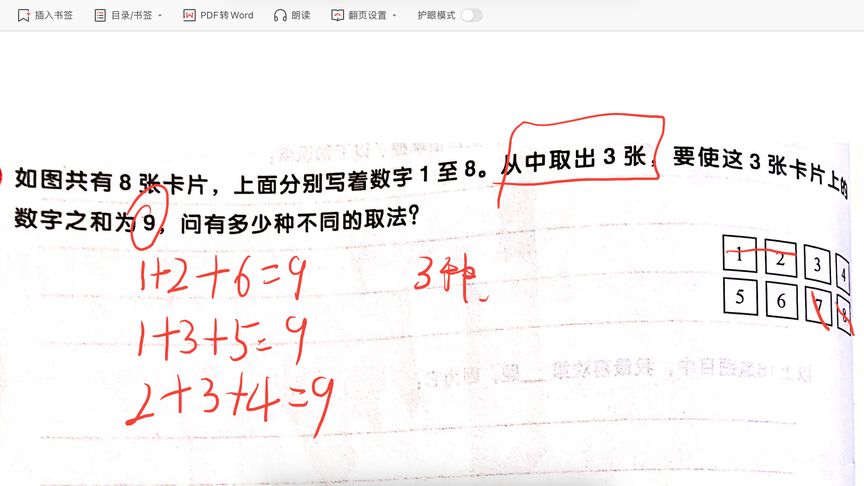 插入书签 目录/书签 PDF转Word 朗读 翻页设置 护眼模式
如图共有8张卡片，上面分别写着数字1至8。从中取出3张，要使这3张卡片上的
数字之和为9，问有多少种不同的取法？
1+2+6=9 3种.
1+3+5=9
2+3+4=9
1 2 3 4
5 6 7 8